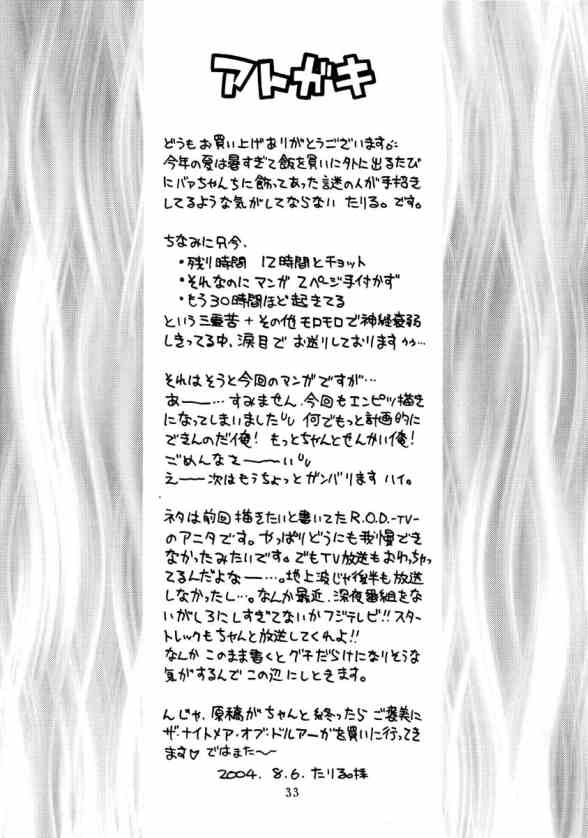 アトガキ
どうもお買い上げありがとうございます♪
今年の夏は暑すぎて飯を買いに外に出るたび
にバァちゃんちに飾ってあった謎の人が手招き
してるような気がしてならない たりる。です。
ちなみに只今、
・残り時間 12時間とチョット
・それなのに マンガ 2ページ手付かず
・もう30時間ほど起きてる
という三重苦+その他モロモロで神経衰弱
しきってる中、涙目でお送りしております…
それはそうと今回のマンガですが…
あー――…すみません、今回もエンピツ描き
になってしまいました 何でもっと計画的に
できんのだ俺! もっとちゃんとせんかい俺!
ごめんなさ〜〜い
えー―次はもうちょっとガンバリます ハイ。
ネタは前回描きたいと書いてたR.O.D.-TV-
のアニタです。やっぱりどうにも我慢でき
なかったみたいです。でもTV放送もおわちゃっ
てるんだよなー―…。地上波じゃ後半も放送
しなかったし…。なんか最近、深夜番組をな
いがしろにしすぎてないかフジテレビ!!スター
トレックもちゃんと放送してくれよ!!
なんか このまま書くとグチだらけになりそうな
気がするんでこの辺にしときます。
んじゃ、原稿がちゃんと終ったらご褒美に
ザ・ナイトメア・オブ・ドルアーガを買いに行ってき
ます♡ ではまた〜
2004. 8.6. たりる。様
33